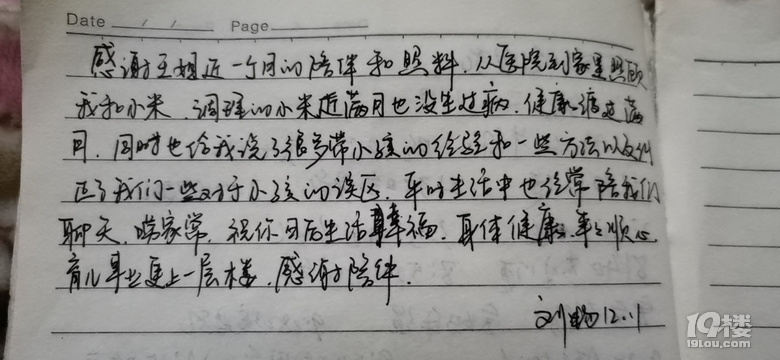 Date / / Page
感谢王姐近一个月的陪伴和照料，从医院到家里照顾
我和小米，调理的小米近满月也没生过病，健康度过满
月，同时也给我说了很多带小孩的经验和一些方法以及纠
正了我们一些对于小孩的误区，平时生活中也经常陪我们
聊天，唠家常，祝你日后生活幸福，身体健康，事事顺心
育儿事业更上一层楼，感谢陪伴.
刘畅12.11
19楼
19lou.com